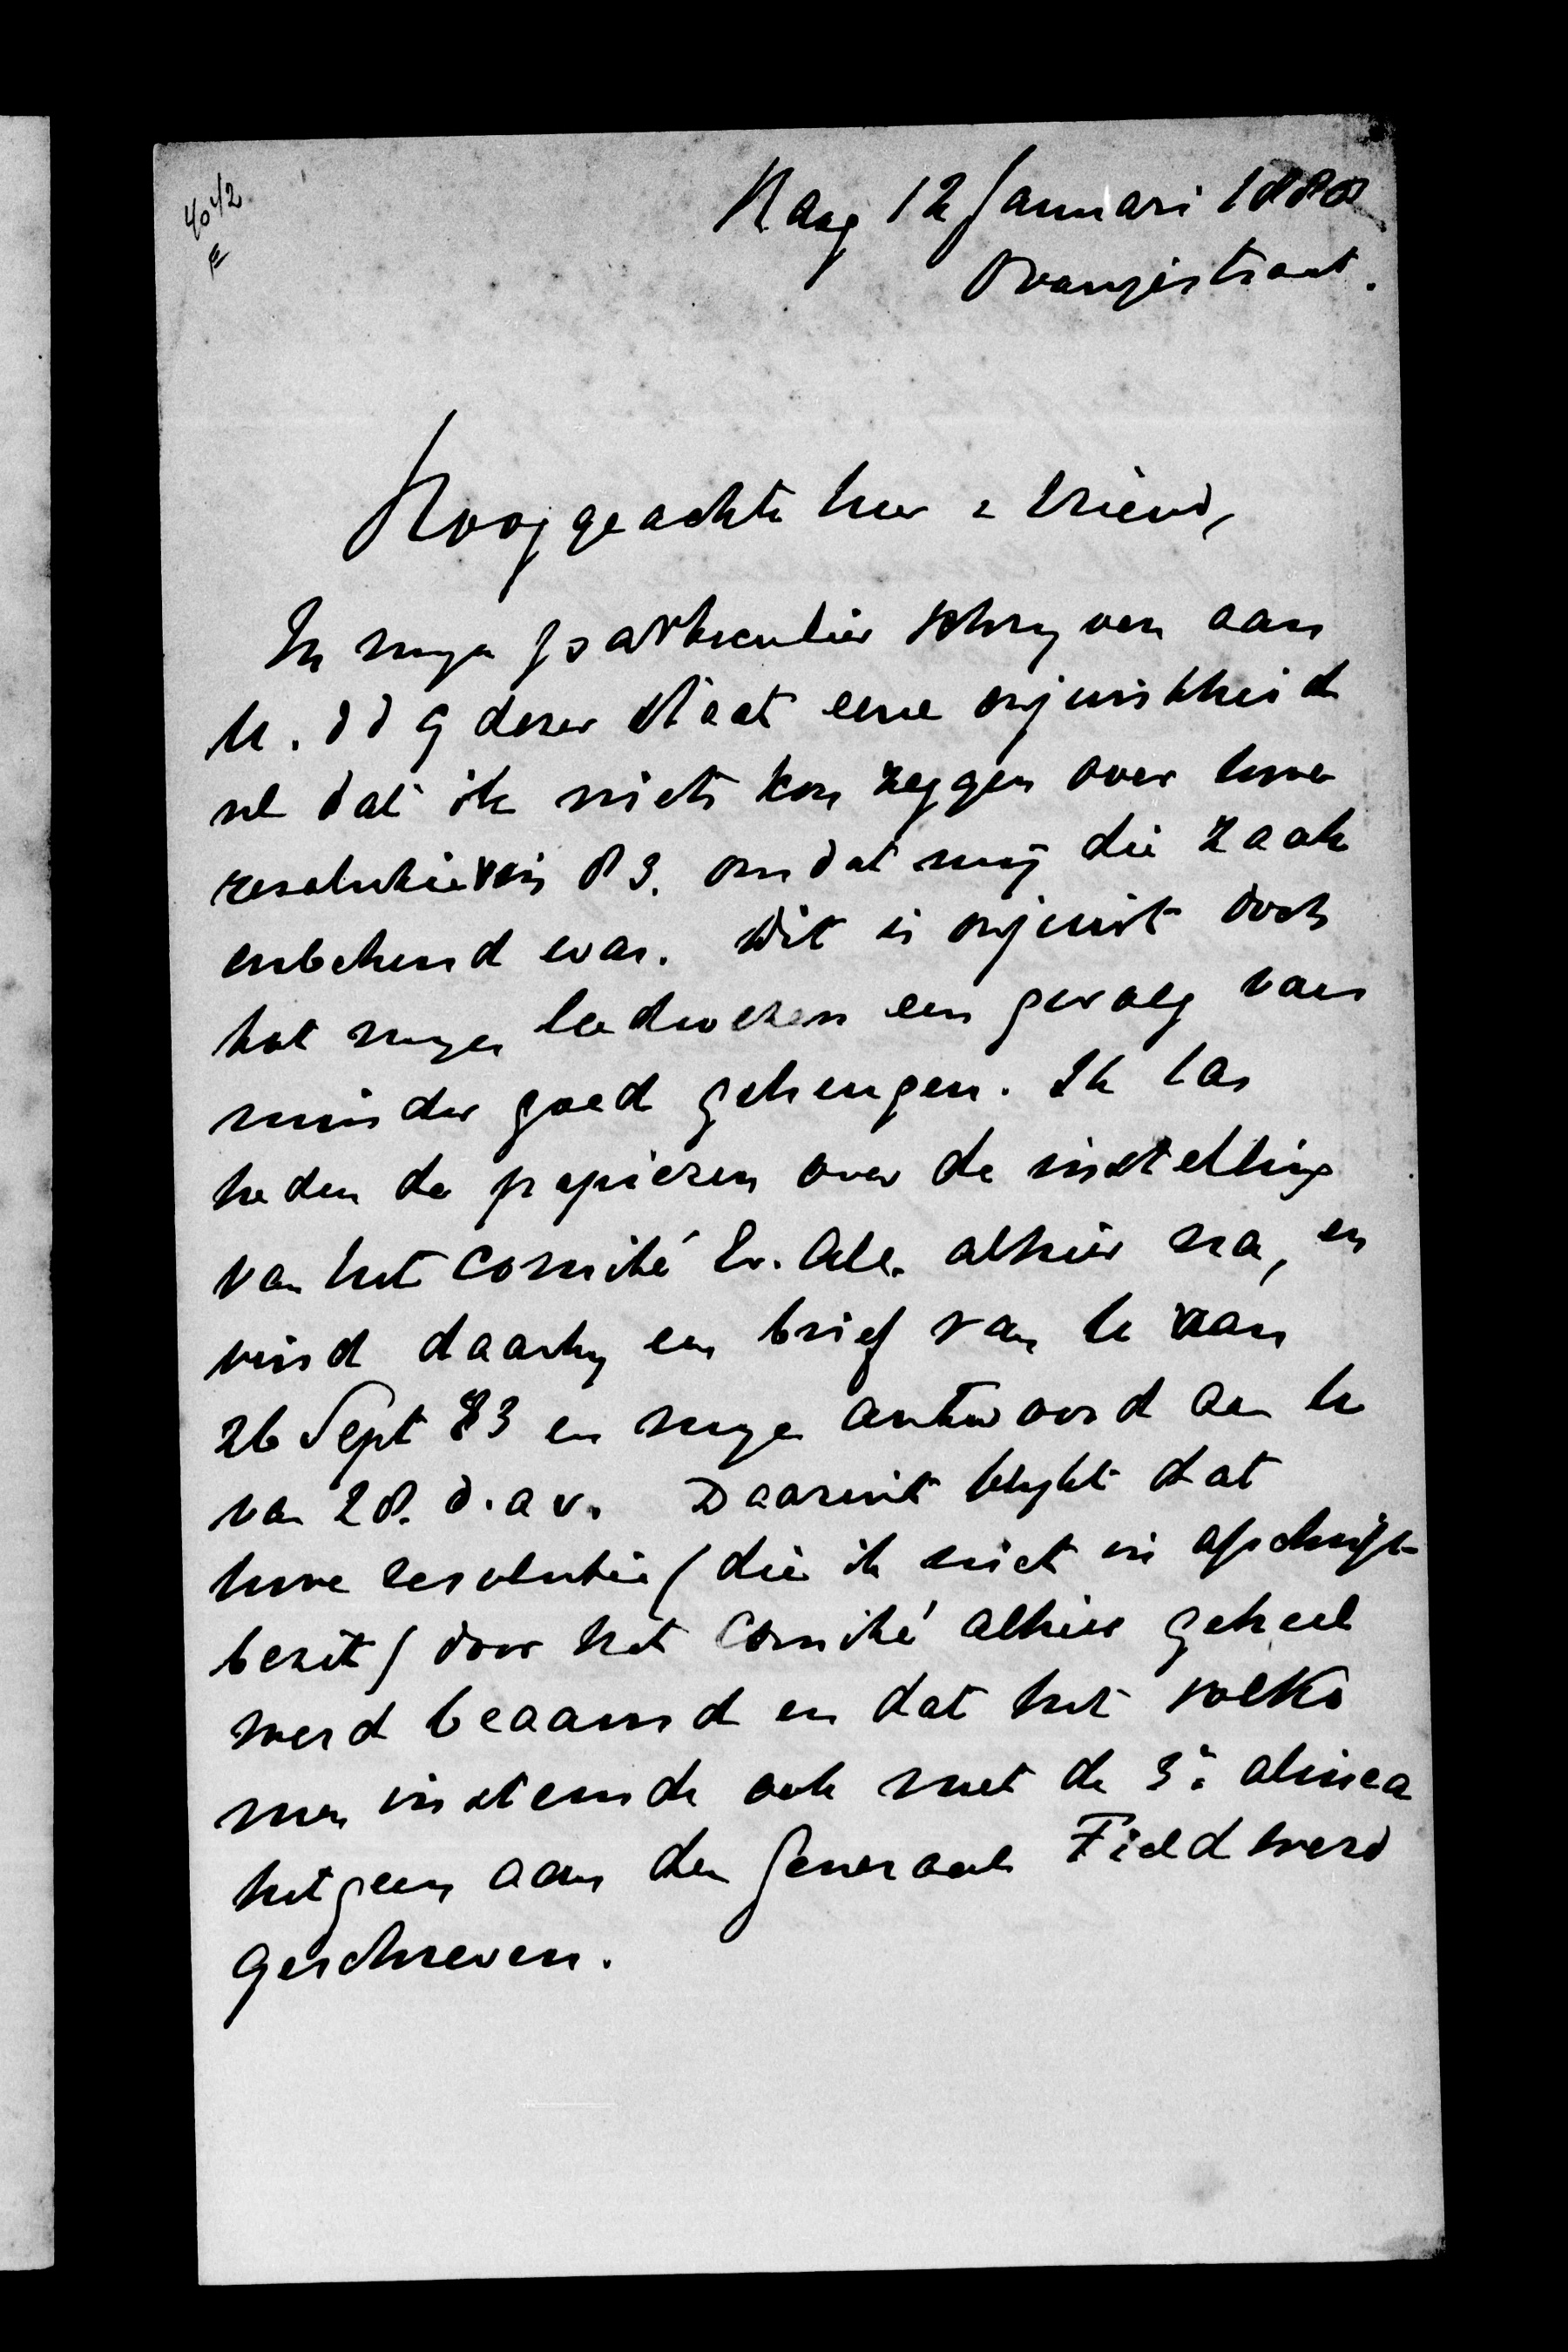 4042
E
Haag 12 Januari 1888
Oranjestraat.
Hooggeachte heer & vriend,
In myn particulier schryven aan
U. dd 9 dezer staat eene onjuistheid
nl dat ik niets kon zeggen over Uwe
resolutie van 83. omdat mij die zaak
onbekend was. Dit is onjuist doch
tot myn leedwezen een gevolg van
minder goed geheugen. Ik las
heden de papieren over de instelling
van het Comité Ev. All. alhier na, en
vind daarby een brief van U van
26 Sept 83 en myn antwoord aan U
van 28. d.a.v. Daaruit blykt dat
Uwe resolutie (die ik niet in afschrift
bezit) door het Comité alhier geheel
werd beaamd en dat het volko
men instemde ook met de 3e alinea
hetgeen aan den Generaal Field werd
geschreven.